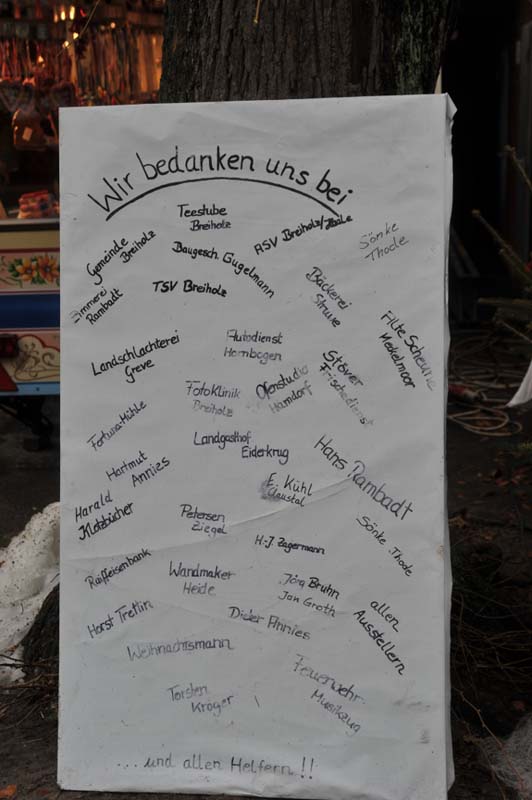 Wir bedanken uns bei
Teestube
Breiholz
Gemeinde
Breiholz
Baugesch. Gugelmann
RSV Breiholz/
Sönke
Thode
Zimmerei
Rambadt
TSV Breiholz
Bäckerei
Struve
Alte Scheune
Meckelmoor
Landschlachterei
Greve
Autodienst
Hornbogen
Stöwer
Frischedienst
FotoKlinik
Breiholz
Ofenstudio
Hamdorf
Fortuna-Mühle
Landgasthof
Eiderkrug
Hans Rambadt
Hartmut
Annies
Harald
Klotzbücher
E. Kühl
Claustal
Petersen
Ziegel
H.-J. Zagermann
Sönke Thode
Raiffeisenbank
Wandmaker
Heide
Jörg Bruhn
Jan Groth
allen
Ausstellern
Horst Tretlin
Dieter Annies
Weihnachtsmann
Feuerwehr
Musikzug
Torsten
Kröger
...und allen Helfern!!